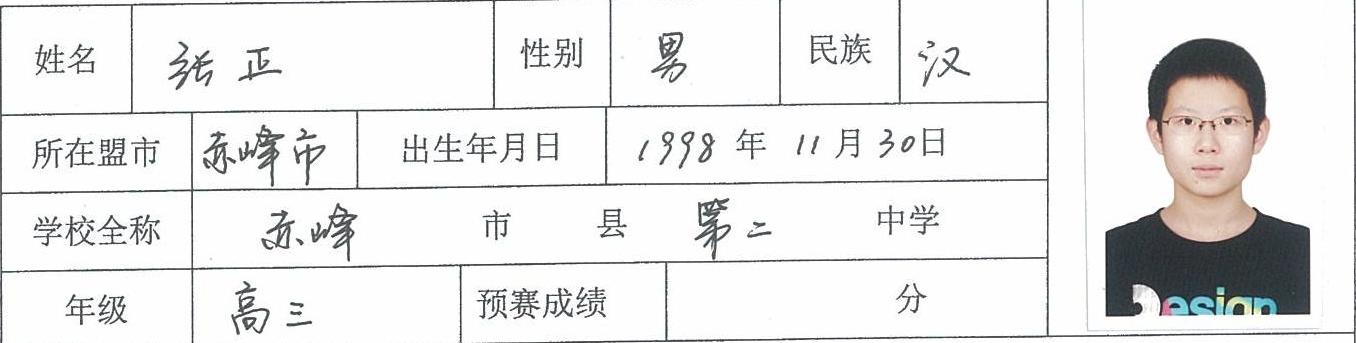 姓名 张正 性别 男 民族 汉
所在盟市 赤峰市 出生年月日 1998年11月30日
学校全称 赤峰 市 县 第二 中学
年级 高三 预赛成绩 分
Design